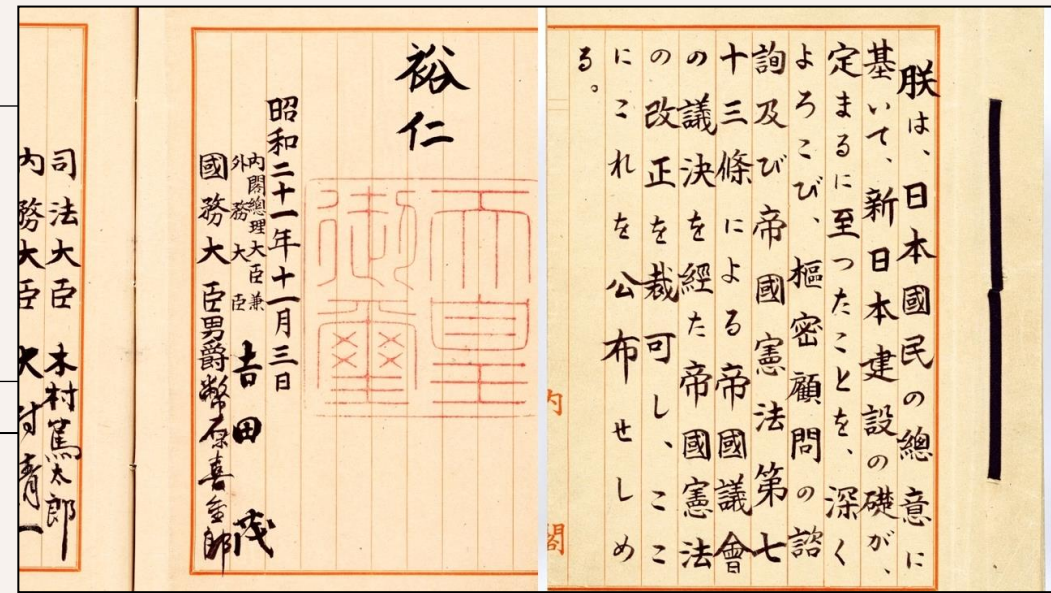 朕は、日本國民の總意に
基いて、新日本建設の礎が、
定まるに至つたことを、深く
よろこび、樞密顧問の諮
詢及び帝國憲法第七
十三條による帝國議會
の議決を經た帝國憲法
の改正を裁可し、ここ
にこれを公布せしめ
る。
内閣
裕仁
天皇
御璽
昭和二十一年十一月三日
内閣總理大臣兼
外務大臣 吉田茂
國務大臣男爵幣原喜重郎
司法大臣 木村篤太郎
内務大臣 大村清一